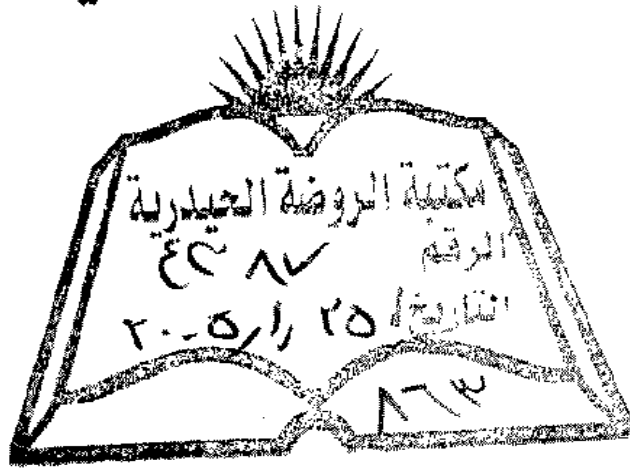 مكتبة الروضة الحيدرية
الرقم ٤٢٨٧
التاريخ / ٢٥ / ١ / ٢٠٠٥
٨٦٣